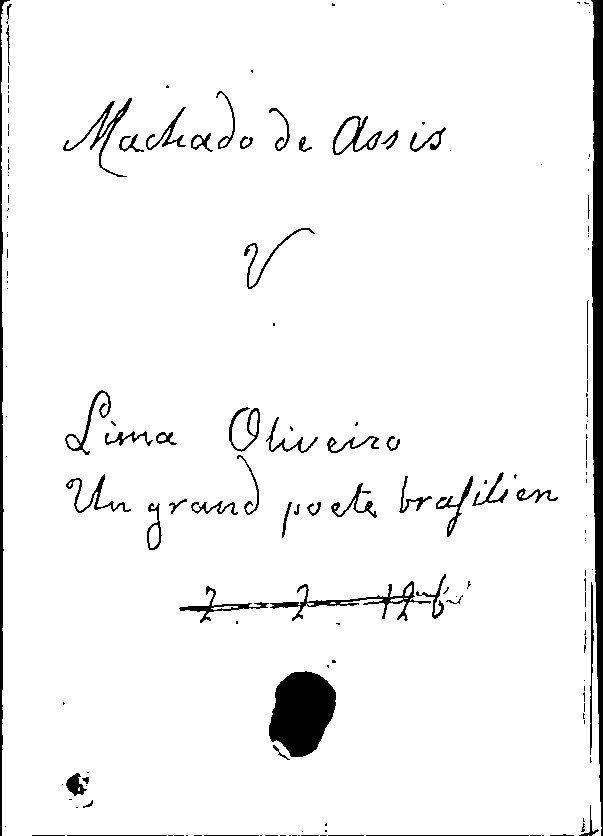 Machado de Assis
V
Lima Oliveira
Un grand poete brasilien
2 2 12